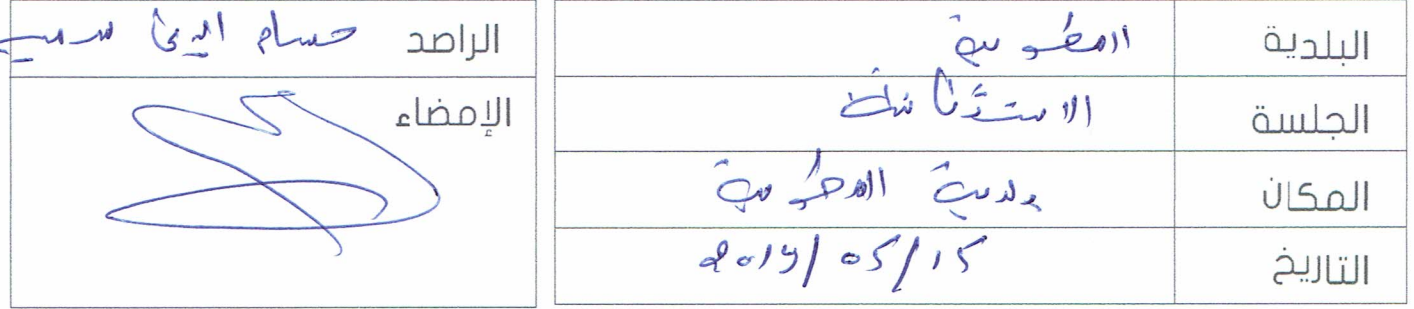 البلدية المطوية
الجلسة
المكان بلدية المطوية
التاريخ 2019/05/15
الراصد حسام الدين
الإمضاء